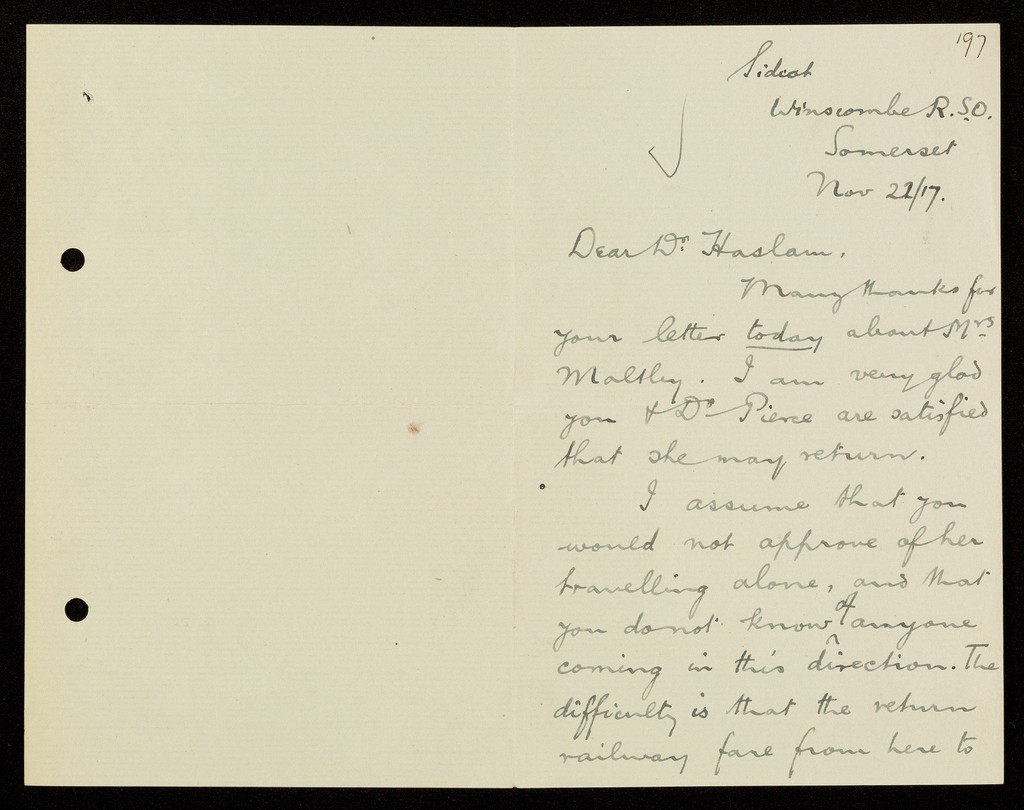 197
Sidcot
Winscombe R.S.O.
Somerset
Nov 22/17.
Dear Dr. Haslam,
Many thanks for
your letter today about Mrs
Maltby. I am very glad
you & Dr Pierce are satisfied
that she may return.
I assume that you
would not approve of her
travelling alone, and that
you do not know of anyone
coming in this direction. The
difficulty is that the return
railway fare from here to